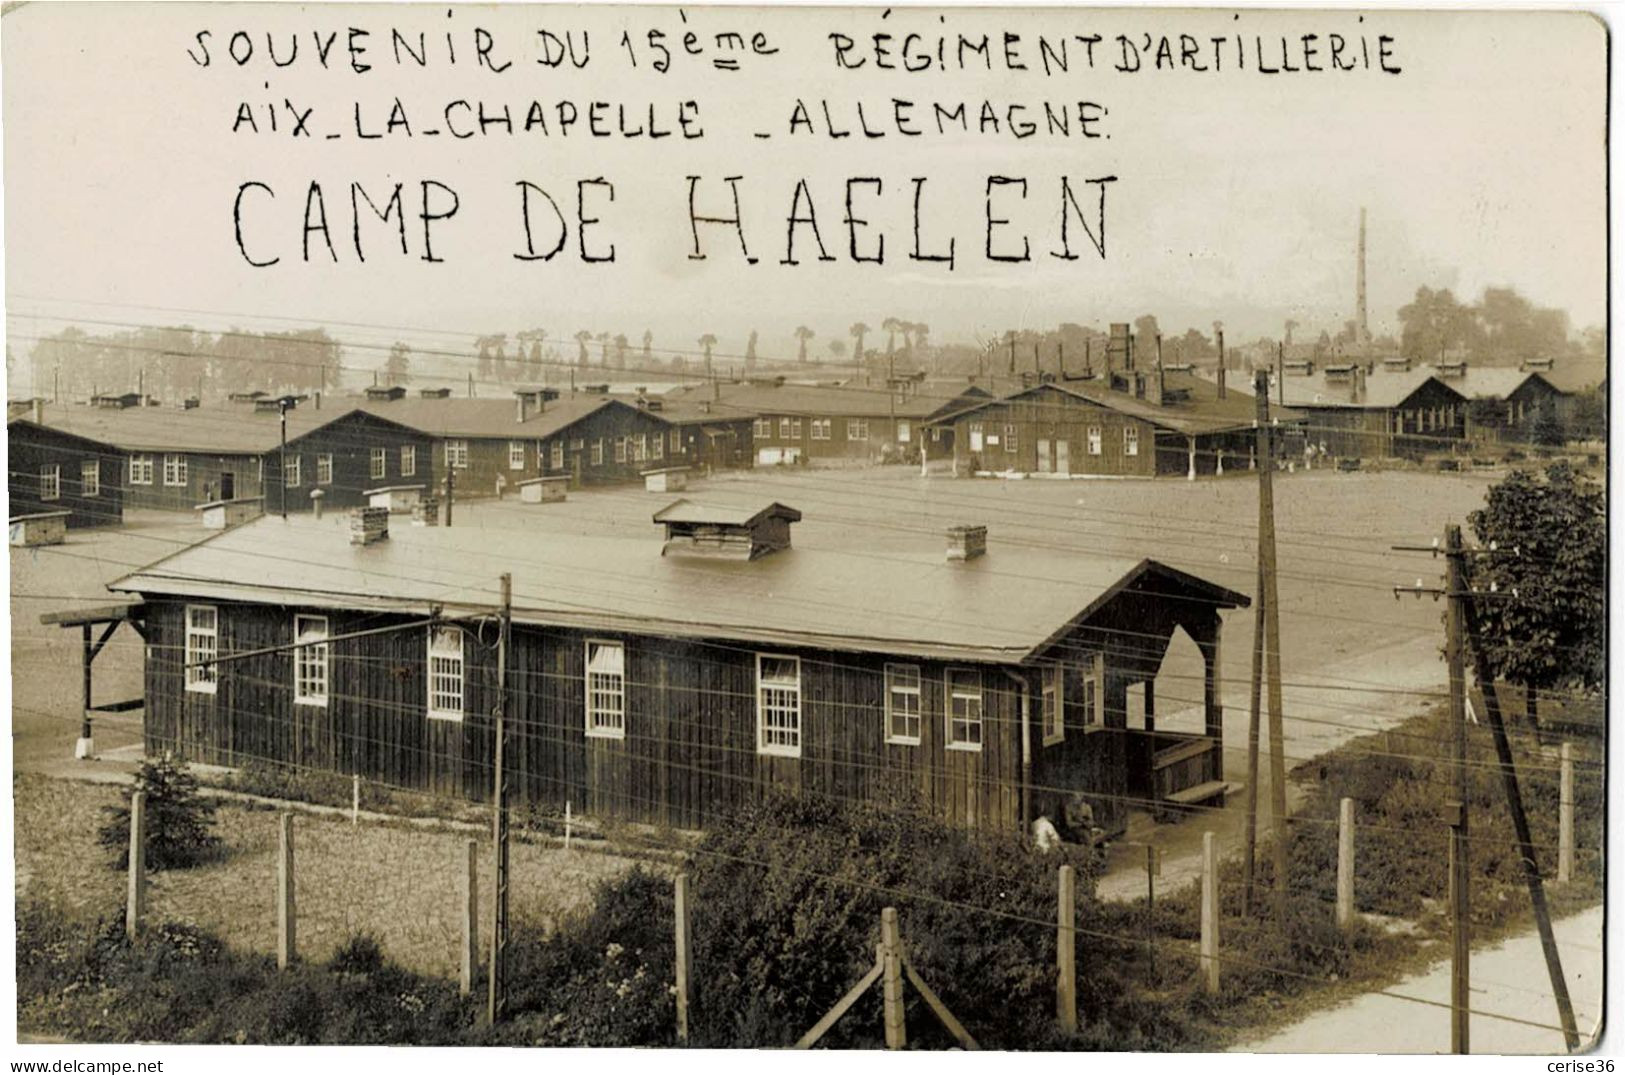 SOUVENIR DU 15ème RÉGIMENT D'ARTILLERIE
AIX_LA_CHAPELLE _ ALLEMAGNE.
CAMP DE HAELEN
www.delcampe.net
cerise36